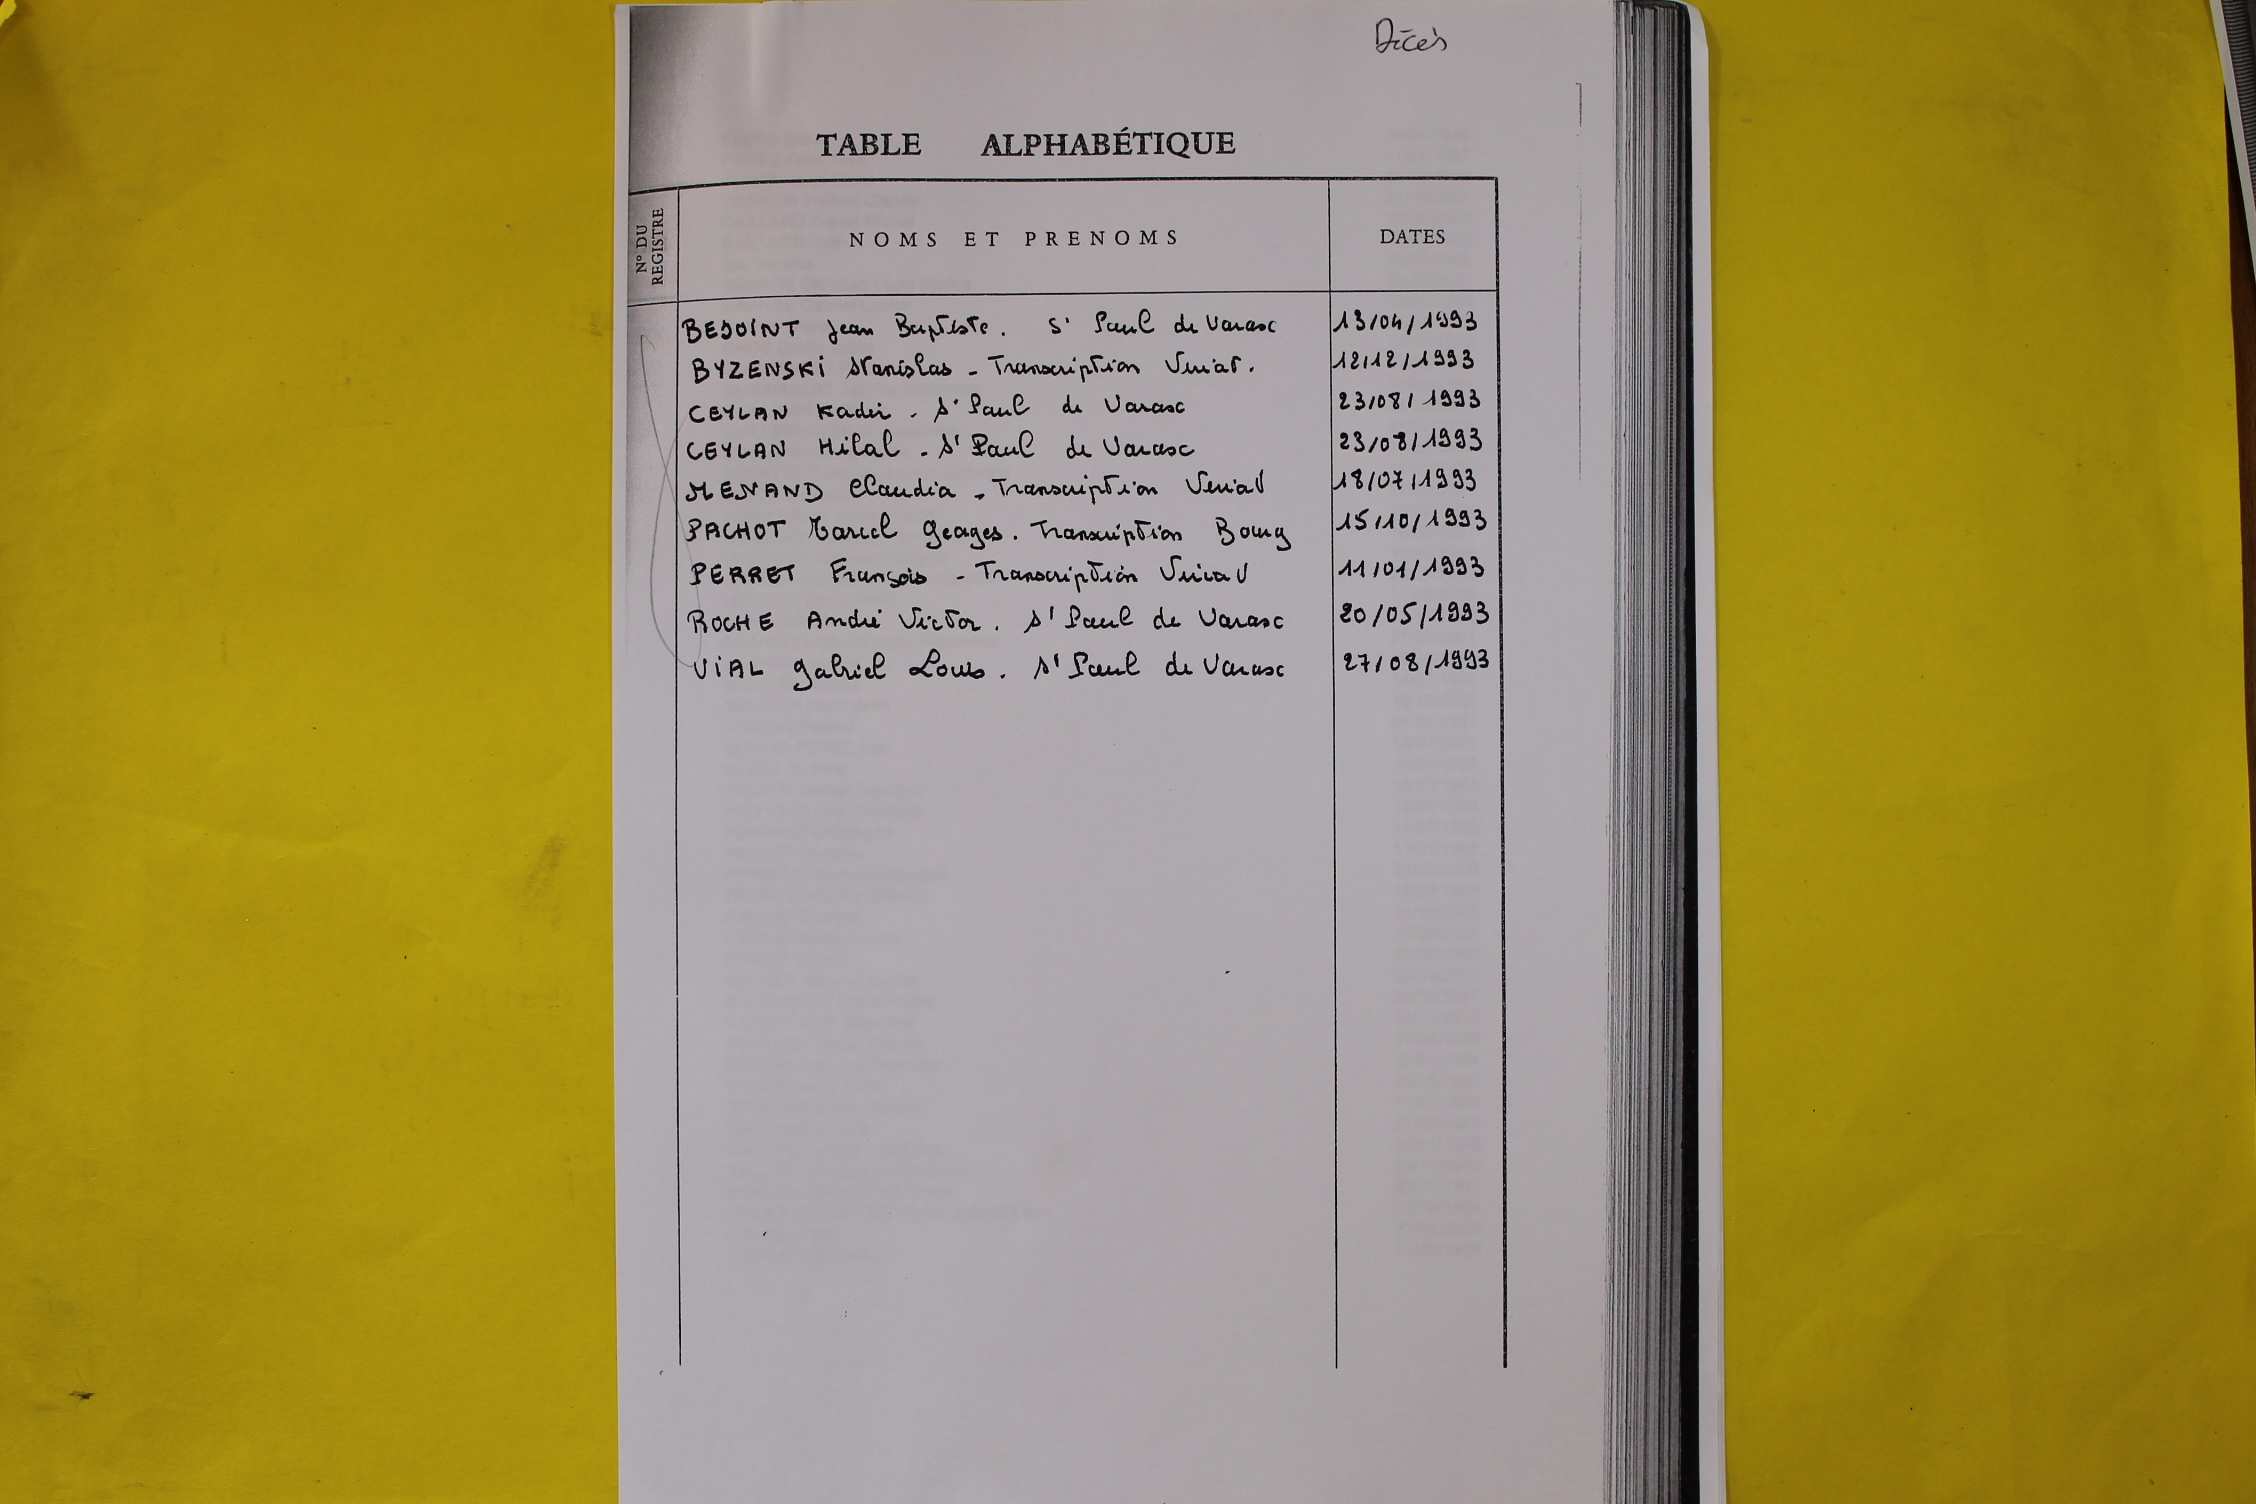 Décès
TABLE ALPHABÉTIQUE
N° DU REGISTRE
NOMS ET PRENOMS
DATES
BEJOINT Jean Baptiste. St Paul de Varax 13/04/1993
BYZENSKI Stanislas - Transcription Viriat. 12/12/1993
CEYLAN Kadir - St Paul de Varax 23/08/1993
CEYLAN Hilal - St Paul de Varax 23/08/1993
MENAND Claudia - Transcription Viriat 18/07/1993
PACHOT Marcel Georges. Transcription Bourg 15/10/1993
PERRET François - Transcription Viriat 11/01/1993
ROCHE André Victor. St Paul de Varax 20/05/1993
VIAL Gabriel Louis. St Paul de Varax 27/08/1993